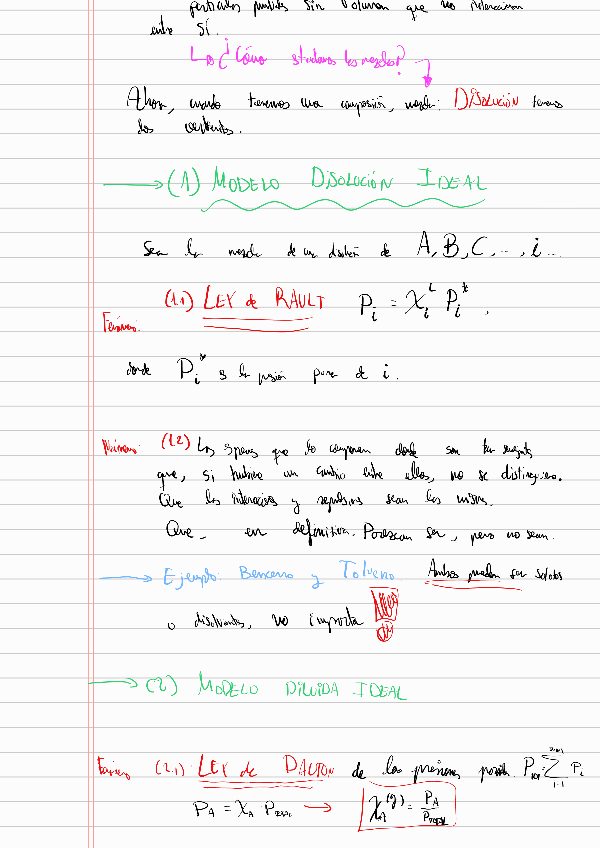 partículas puntuales sin volumen que no interaccionan
entre sí.
¿Cómo studiamos las mezclas?
Ahora, cuando tenemos una composición, mezcla: DISOLUCIÓN tenemos
dos vertientes.
(1) MODELO DISOLUCIÓN IDEAL
Sea la mezcla de una disolución de A, B, C, ..., i ...
(1.1) LEY de RAULT P_i = χ_i^L P_i^*.
donde P_i^* s la presión pura de i.
(1.2) Las que lo componen donde son tan
que, si hubiera un cambio entre ellas, no se distinguiera.
Que las interacciones y repulsiones sean las mismas.
Que, en definitiva. Parezcan ser, pero no sean.
Ejemplo: Benceno y Tolueno Ambos pueden ser solutos
o disolventes, no importa
(2) MODELO DILUIDA IDEAL
(2.1) LEY de DALTON de las presiones P = Σ P_i
P_A = χ_A · P_TOTAL → χ_A^(g) = P_A / P_TOTAL